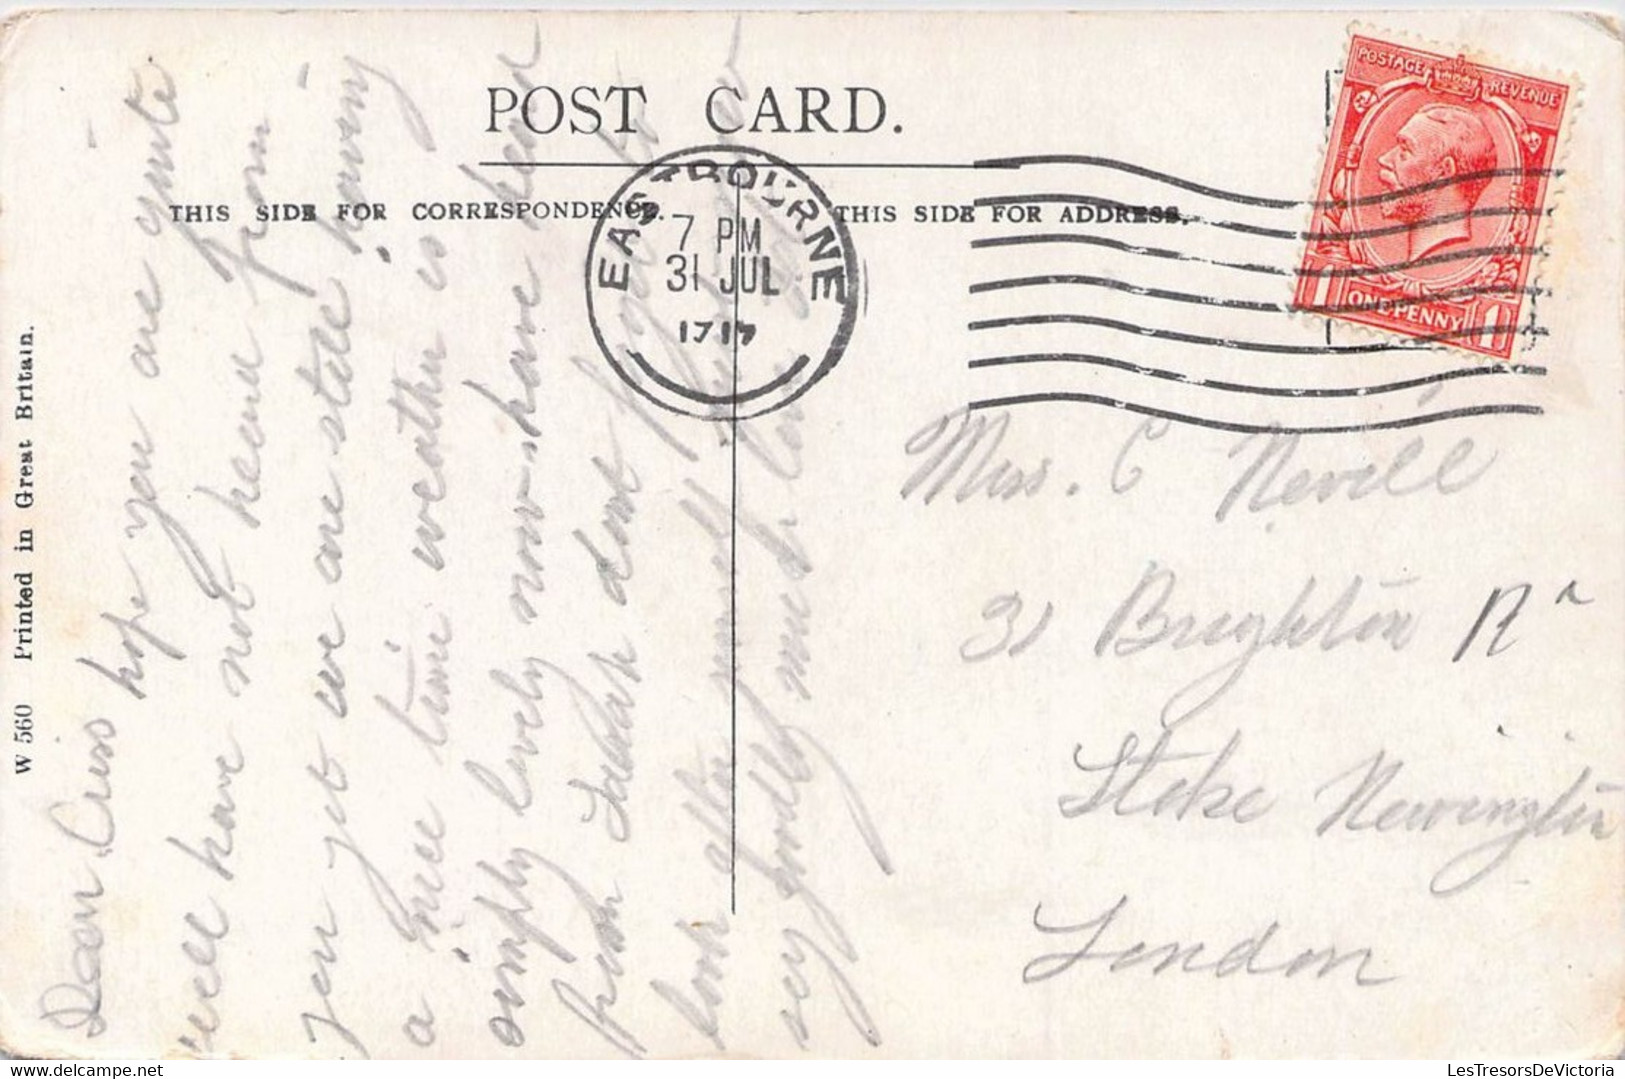 POST CARD.
THIS SIDE FOR CORRESPONDENCE.
THIS SIDE FOR ADDRESS.
EASTBOURNE
7 PM
31 JUL
POSTAGE REVENUE
1 ONE PENNY 1
W 560 Printed in Great Britain.
Dear Ciss hope you are quite
well have not heard from
you yet we are still having
a nice time weather is
simply lovely now have heard
from Sarah dont forget to
look after yourself
much love
Miss. C Nevill
31 Brighton Rd
Stoke Newington
London
LesTresorsDeVictoria